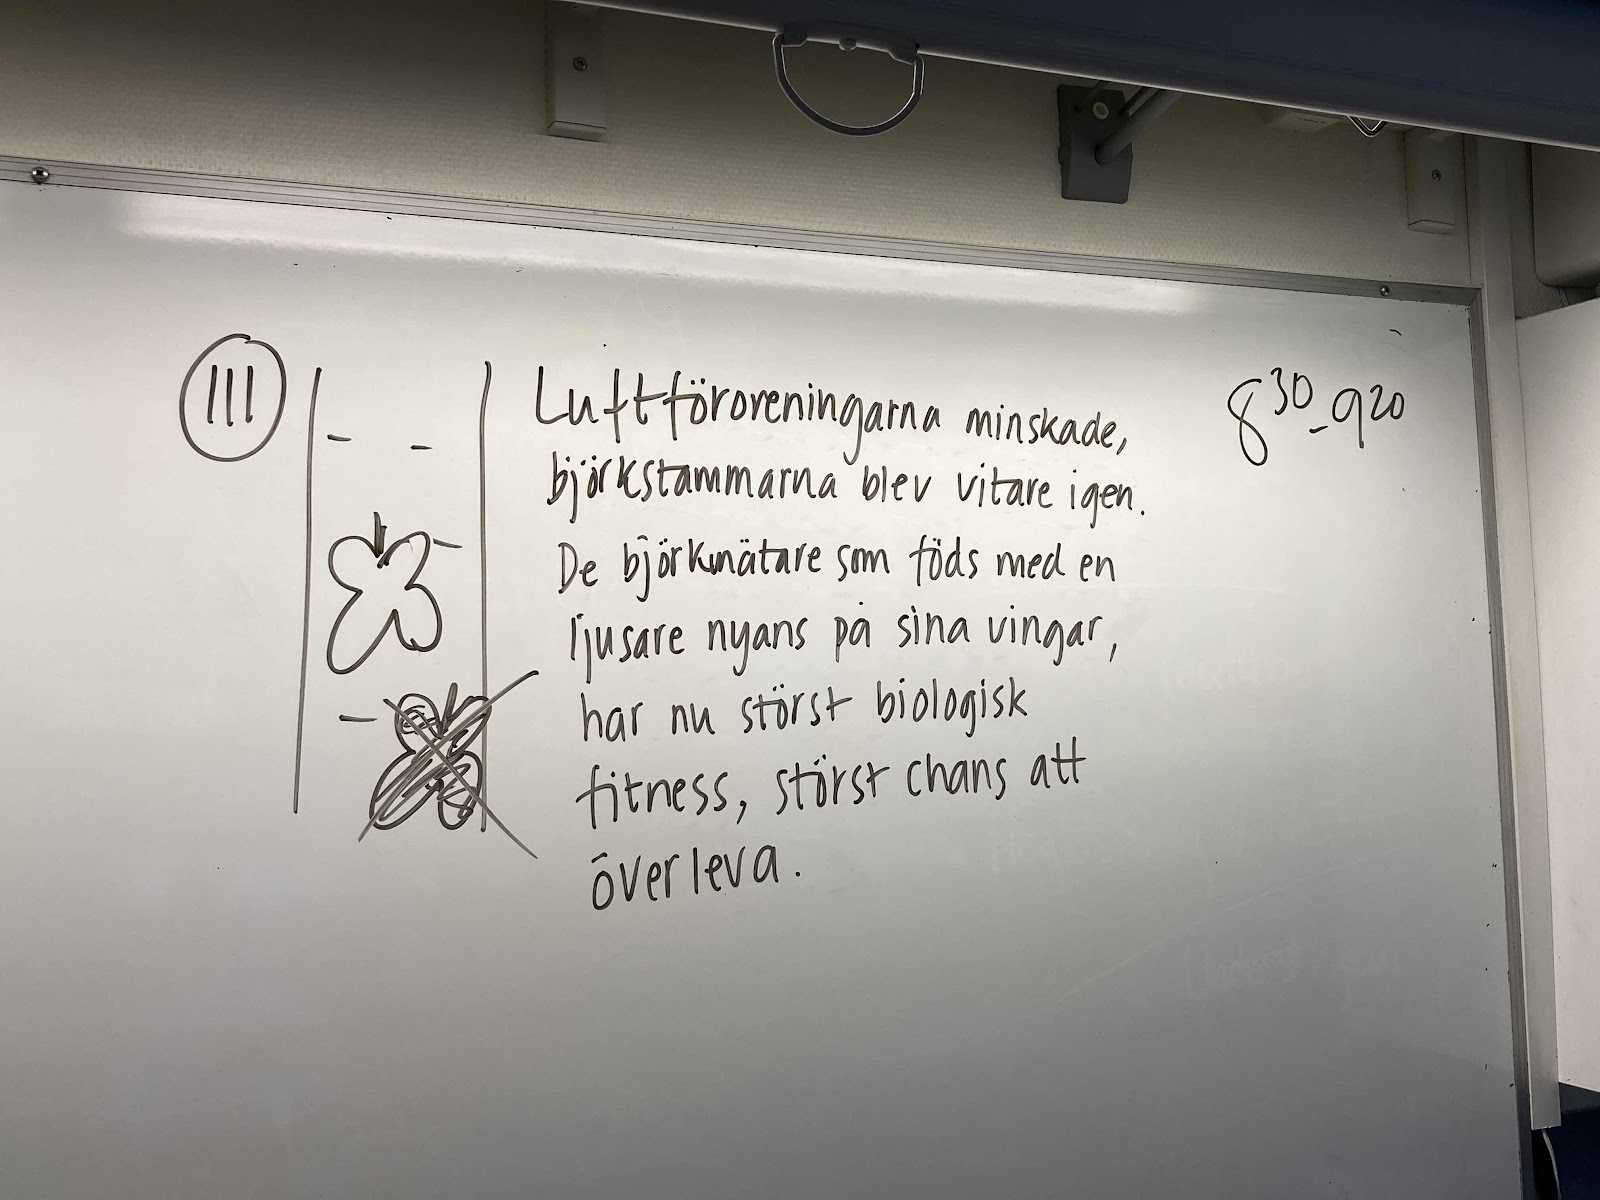 III
Luftföroreningarna minskade,
björkstammarna blev vitare igen.
De björkmätare som föds med en
ljusare nyans på sina vingar,
har nu störst biologisk
fitness, störst chans att
överleva.
8³⁰-9²⁰